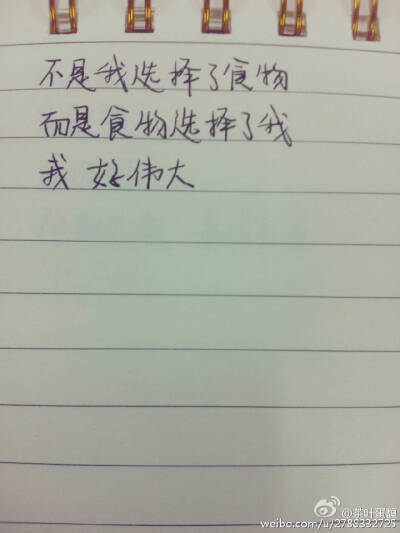 不是我选择了食物
而是食物选择了我
我好伟大
@茶叶蛋醇
weibo.com/u/2788332725